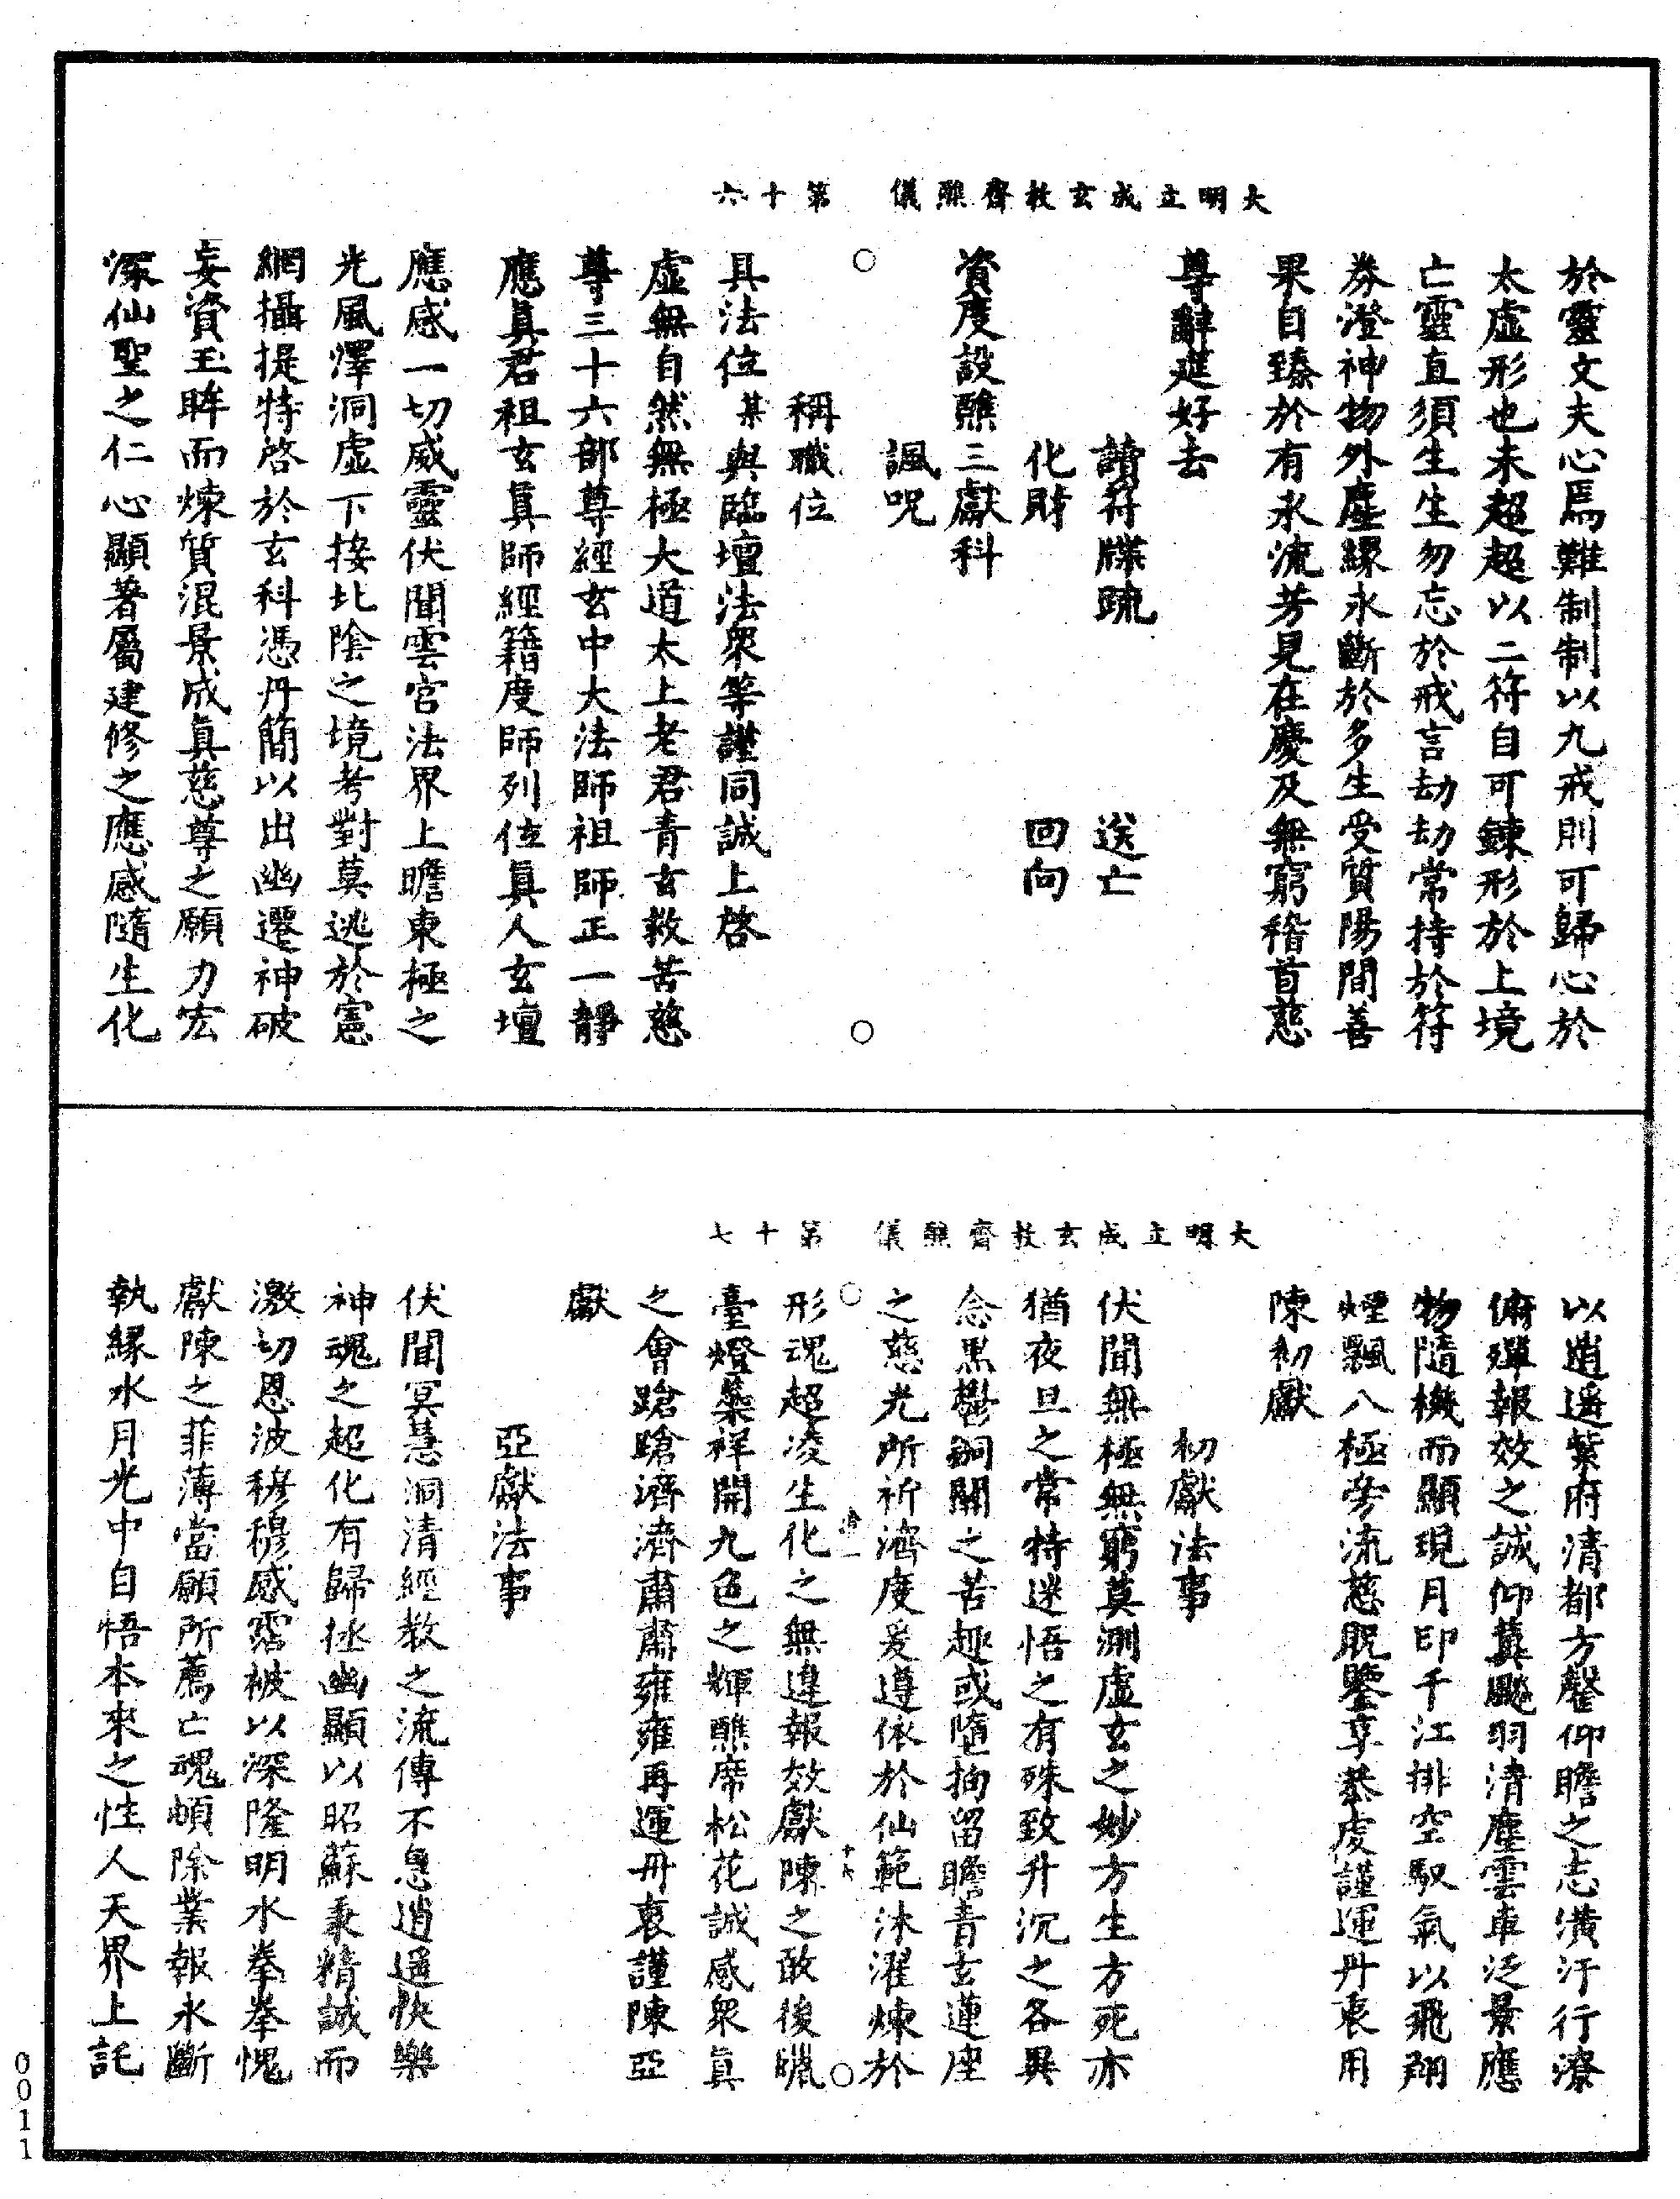 大明立成玄教齋醮儀 第十六
於靈文夫心焉難制制以九戒則可歸心於
太虛形也未超超以二符自可鍊形於上境
亡靈直須生生勿忘於戒言劫劫常持於符
券澄神物外塵緣永斷於多生受質陽間善
果自臻於有永流芳見在慶及無窮稽首慈
尊辭筵好去
讀符牒疏 送亡
化財 回向
資度設醮三獻科
諷呪
稱職位
具法位某與臨壇法衆等謹同誠上啓
虛無自然無極大道太上老君青玄救苦慈
尊三十六部尊經玄中大法師祖師正一靜
應真君祖玄真師經籍度師列位真人玄壇
應感一切威靈伏聞雲宮法界上瞻東極之
光風澤洞虛下接北陰之境考對莫逃於憲
網攝提特啓於玄科憑丹簡以出幽遷神破
妄資玉眸而煉質混景成真慈尊之願力宏
深仙聖之仁心顯著屬建修之應感隨生化
大明立成玄教齋醮儀 第十七
以逍遙紫府清都方罄仰瞻之志潢汙行潦
俯殫報效之誠仰冀飈羽清塵雲車泛景應
物隨機而顯現月印千江排空馭氣以飛翔
煙飄八極旁流慈眤鑒享恭虔謹運丹衷用
陳初獻
初獻法事
伏聞無極無窮莫測虛玄之妙方生方死亦
猶夜旦之常特迷悟之有殊致升沉之各異
念黑鬱銅關之苦趣或墮拘留瞻青玄蓮座
之慈光所祈濟度爰遵依於仙範沐濯煉於
形魂超凌生化之無違報效獻陳之敢後蠟
臺燈蘂祥開九色之輝醮席松花誠感衆真
之會蹌蹌濟濟肅肅雍雍再運丹衷謹陳亞
獻
亞獻法事
伏聞冥慧洞清經教之流傳不息逍遙快樂
神魂之超化有歸拯幽顯以昭蘇秉精誠而
激切恩波穆穆感霑被以深隆明水拳拳愧
獻陳之菲薄當願所薦亡魂頓除業報永斷
執緣水月光中自悟本來之性人天界上託
0011